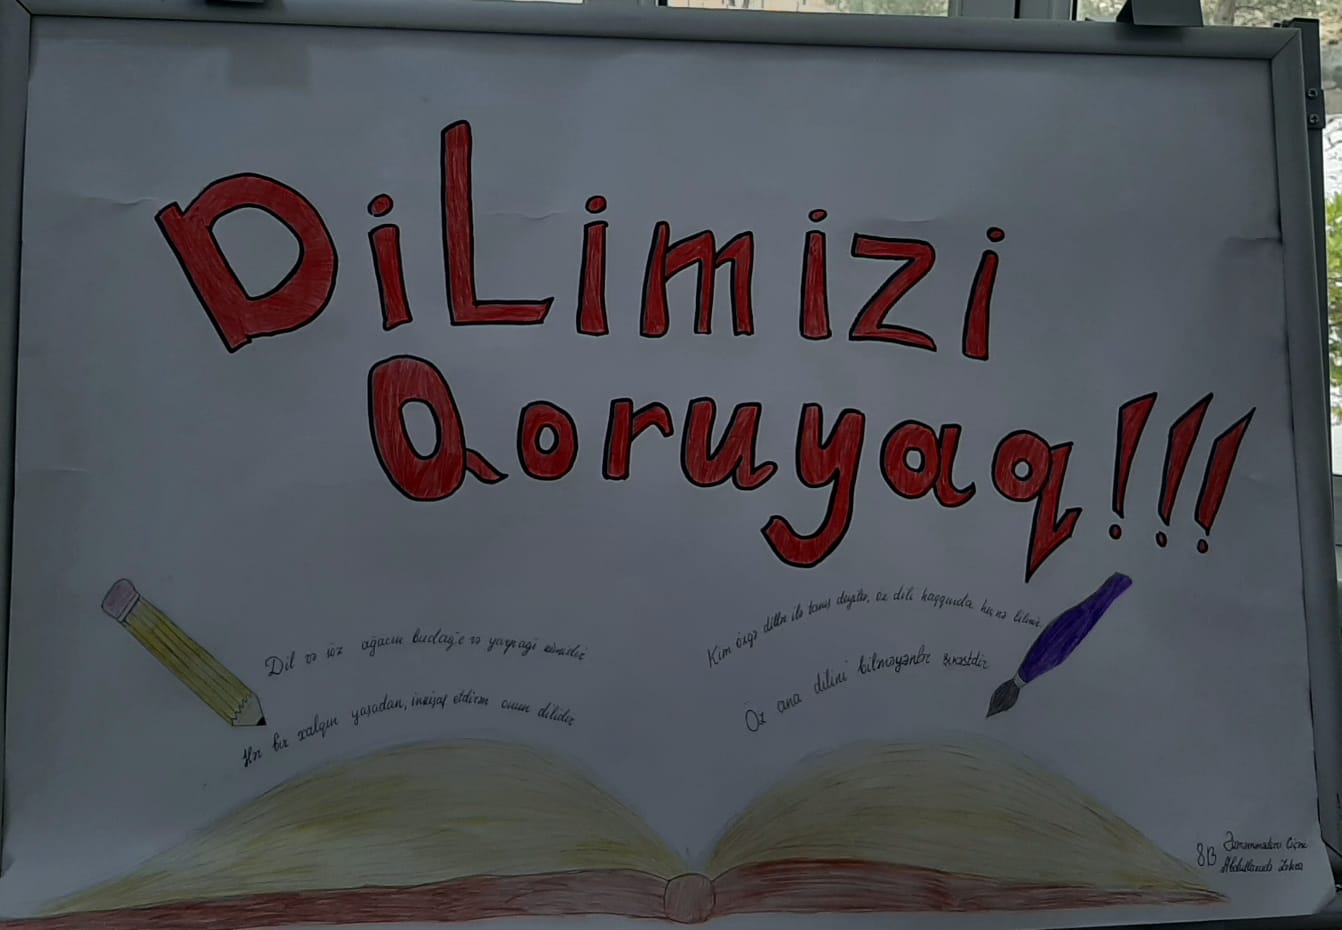 DiLimizi
Qoruyaq!!!
Dil və söz ağacın budağı və yarpağı kimidir
Hər bir xalqın yaşadan, inkişaf etdirən onun dilidir
Kim özgə dillər ilə tanış deyilsə, öz dili haqqında heç nə bilmir.
Öz ana dilini bilməyənlər şikəstdir
8B